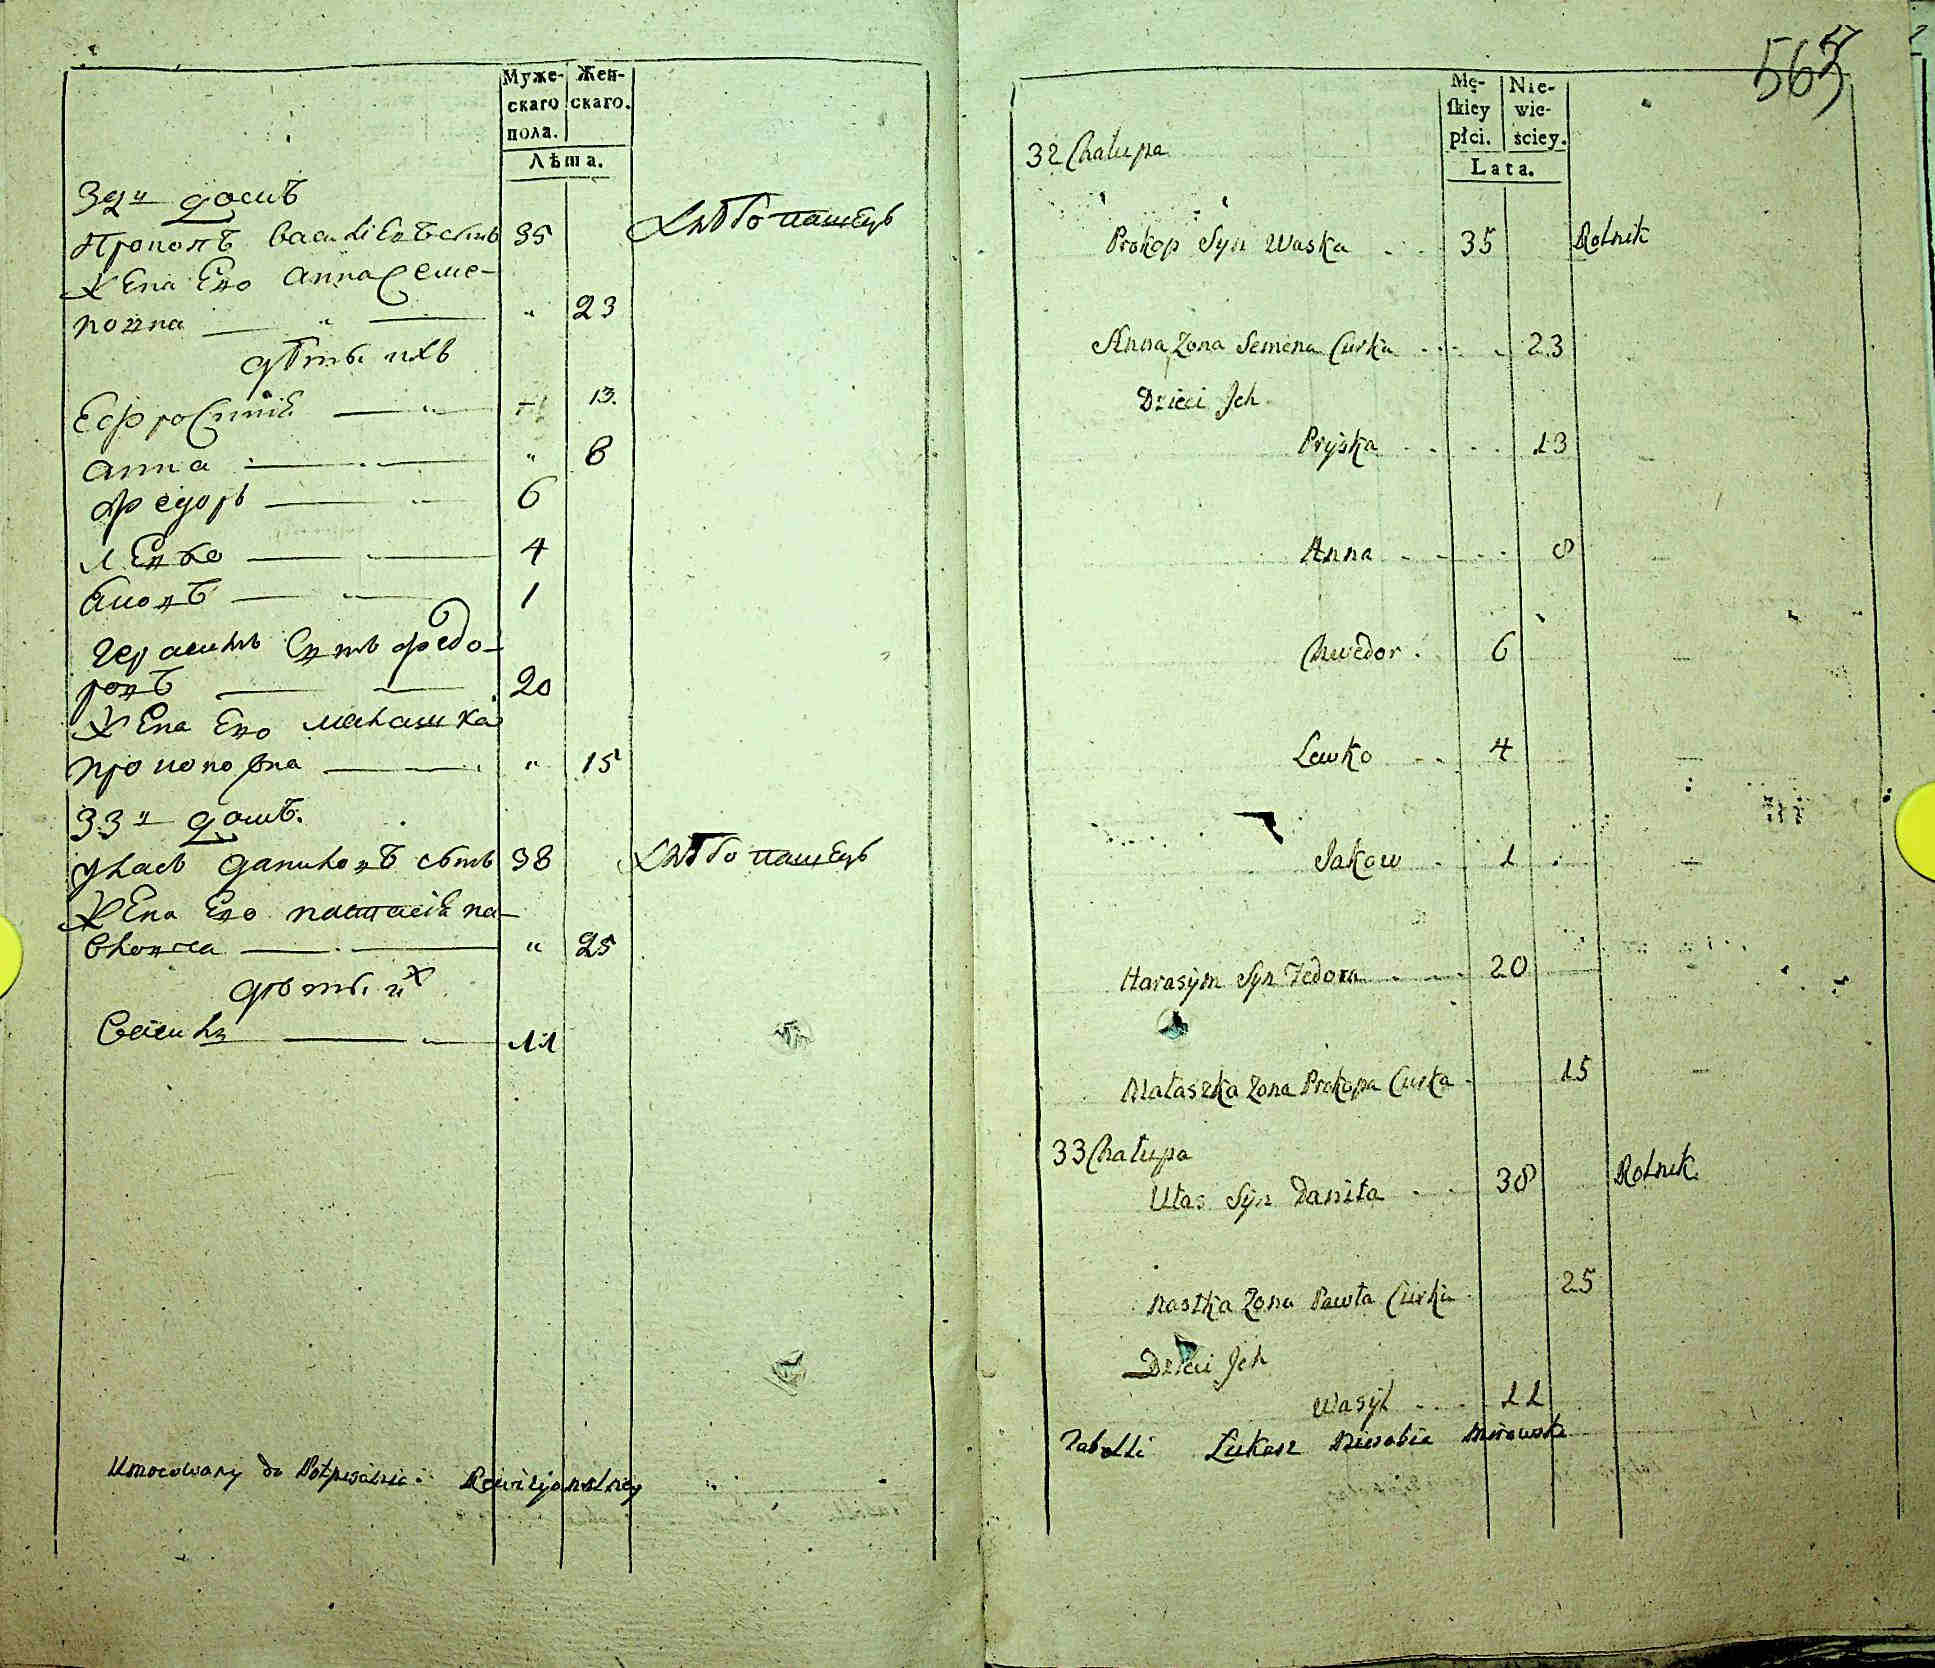 Муже-
скаго
пола.
Жен-
скаго.
Лѣта.
32й домъ
Прокопъ Васильевъ сынъ 35 Хлѣбопашецъ
Жена Его Анна Семе-
новна " " 23
дѣти ихъ
Ефросинiя " 13.
Анна " 8
Федоръ 6
Левко 4
Яковъ 1
Герасимъ Сынъ Федо-
ровъ 20
Жена Его Малашка
Прокопова " 15
33й домъ.
Уласъ Даниловъ сынъ 38 Хлѣбопашецъ
Жена Его Настасiя Па-
вловна " 25
дѣти их
Василь 11
Umocowany do Podpisania Rewizyonalney
565
Mę-
skiey
płci.
Nie-
wie-
ściey.
Lata.
32 Chałupa
Prokop Syn Waska 35 Rolnik
Anna Zona Semena Curka 23
Dzieci Jch
Pryska 13
Anna 8
Chwedor 6
Lewko 4
Jakow 1
Harasym Syn Fedora 20
Małaszka Zona Prokopa Curka 15
33 Chałupa
Ułas Syn Daniła 38 Rolnik
Nastka Zona Pawła Curka 25
Dzieci Jch
Wasyl 11
Tabelli Łukasz